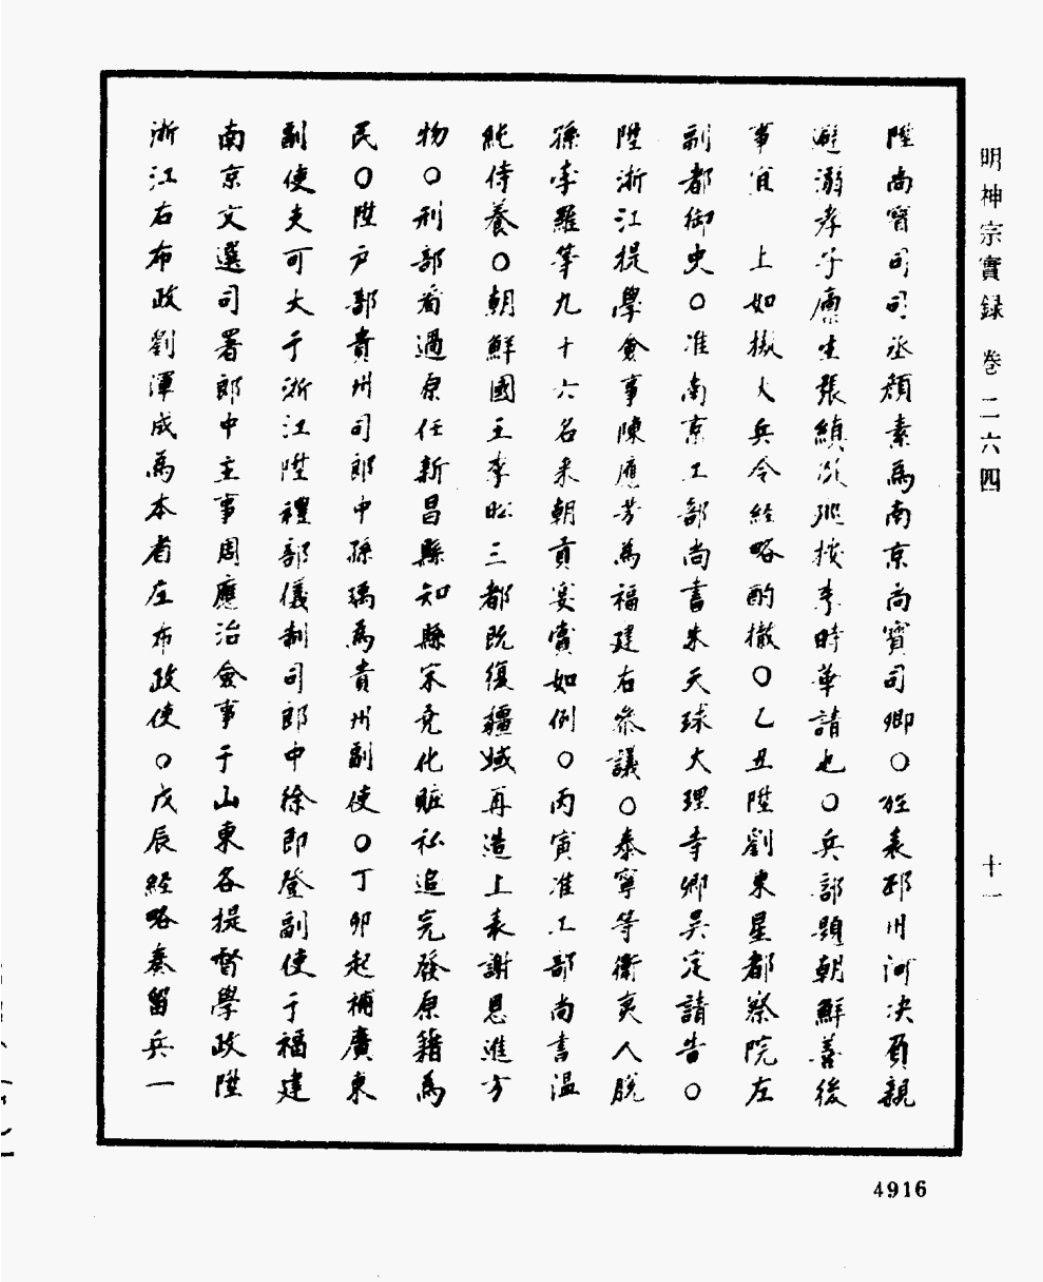 明神宗實録 卷二六四
十一
陞尚寶司司丞顏素為南京尚寶司卿○旌表邳州河決負親
避溺孝子廩生張縝從巡按李時華請也○兵部題朝鮮善後
事宜 上如擬大兵令經略酌撤○乙丑陞劉東星都察院左
副都御史○准南京工部尚書朱天球大理寺卿吳定請告○
陞浙江提學僉事陳應芳為福建右參議○泰寧等衛夷人脫
孫孛羅等九十六名來朝貢宴賞如例○丙寅准工部尚書溫
純侍養○朝鮮國王李昖三都既復疆域再造上表謝恩進方
物○刑部看過原任新昌縣知縣宋堯化贓私追完發原籍為
民○陞戶部貴州司郎中孫瑀為貴州副使○丁卯起補廣東
副使支可大于浙江陞禮部儀制司郎中徐即登副使于福建
南京文選司署郎中主事周應治僉事于山東各提督學政陞
浙江右布政劉渾成為本省左布政使○戊辰經略奏留兵一
4916